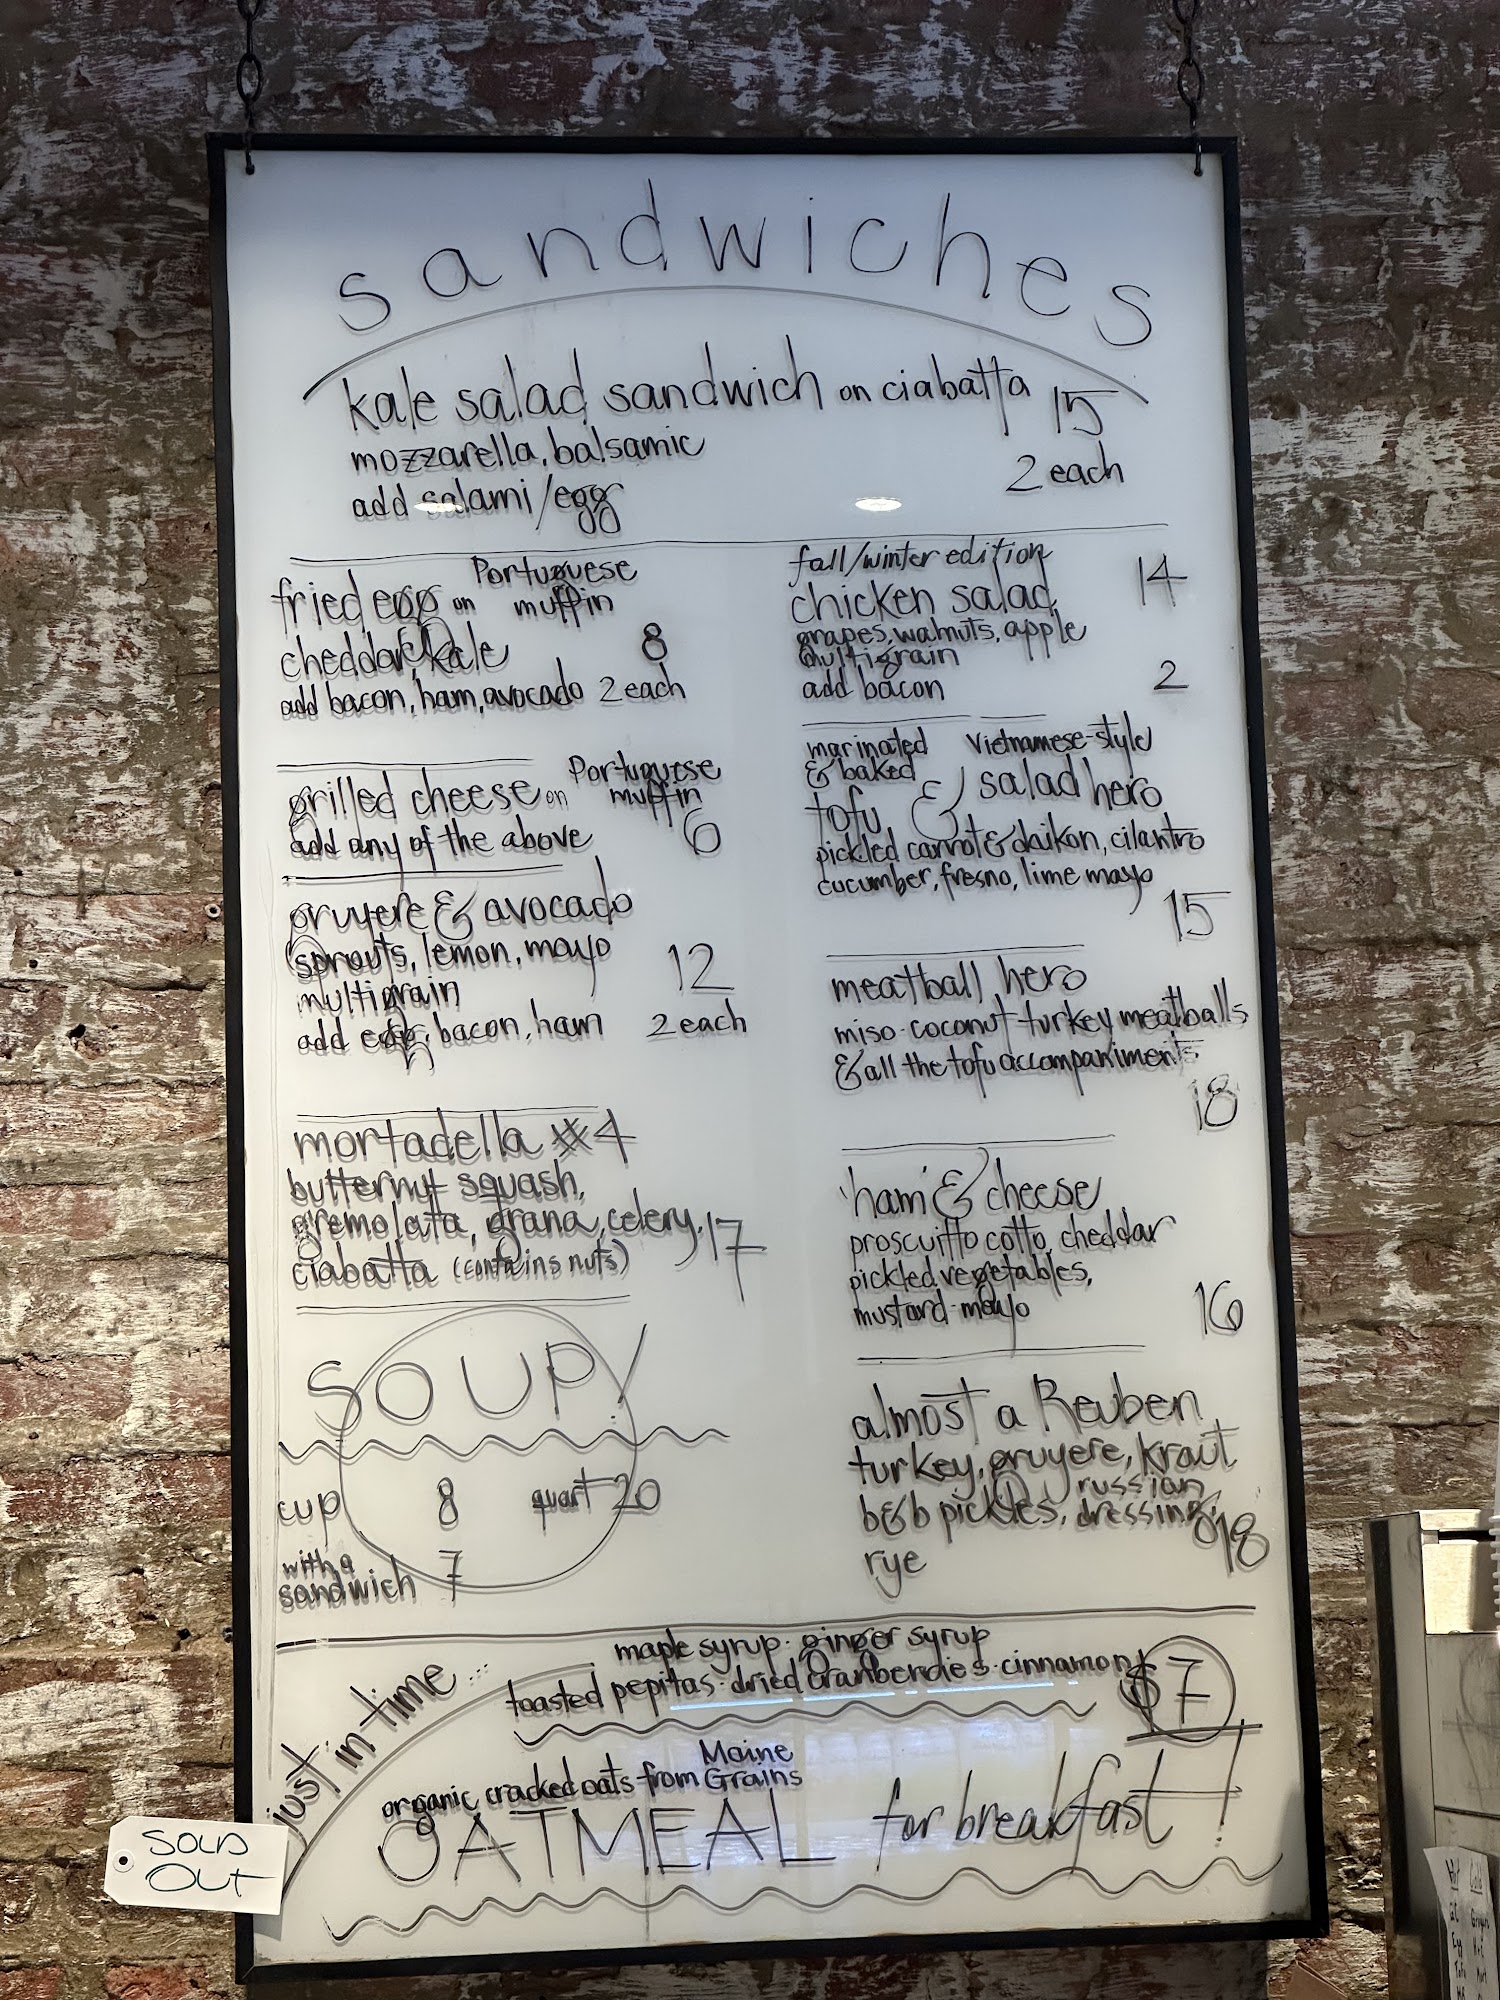 sandwiches
kale salad sandwich on ciabatta 15
mozzarella, balsamic
add salami/egg 2 each
fried egg on Portuguese muffin
cheddar, kale 8
add bacon, ham, avocado 2 each
grilled cheese on Portuguese muffin
add any of the above 6
gruyere & avocado
sprouts, lemon, mayo 12
multigrain
add egg, bacon, ham 2 each
mortadella #4
butternut squash,
gremolata, grana, celery, 17
ciabatta (contains nuts)
SOUP!
cup 8 quart 20
with a
sandwich 7
fall/winter edition
chicken salad 14
grapes, walnuts, apple
multigrain
add bacon 2
marinated & baked tofu & Vietnamese-style salad hero
pickled carrot & daikon, cilantro
cucumber, fresno, lime mayo
15
meatball hero
miso-coconut-turkey meatballs
& all the tofu accompaniments
18
'ham' & cheese
proscuitto cotto, cheddar
pickled vegetables,
mustard-mayo 16
almost a Reuben
turkey, gruyere, kraut
b&b pickles, russian dressing,
rye 18
just-in-time...
maple syrup · ginger syrup
toasted pepitas · dried cranberries · cinnamon $7
organic cracked oats from Maine Grains
OATMEAL for breakfast!
SOLD
OUT
Egg
Tofu